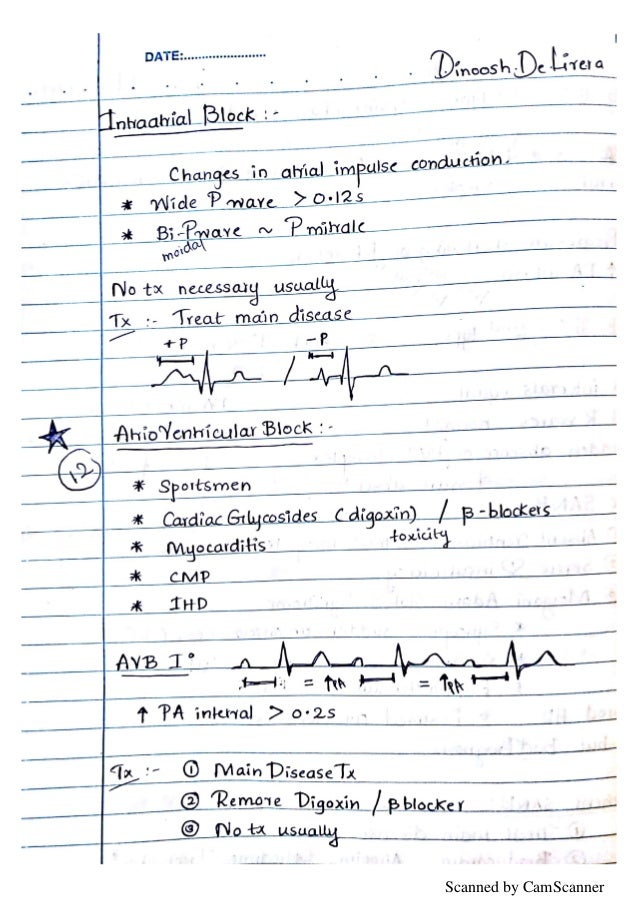 DATE:........................
Dinoosh De Livera
Intraatrial Block :-
Changes in atrial impulse conduction.
* Wide P wave > 0.12s
* Bi-Pwave ~ P mitrale
modal
No tx necessary usually
Tx :- Treat main disease
+P
-P
/
AtrioVentricular Block :-
12
* Sportsmen
* Cardiac Glycosides (digoxin) / β-blockers
toxicity
* Myocarditis
* CMP
* IHD
AVB I°
= ↑PA = ↑PA
↑ PA interval > 0.2s
Tx :- ① Main Disease Tx
② Remove Digoxin / β blocker
③ No tx usually
Scanned by CamScanner